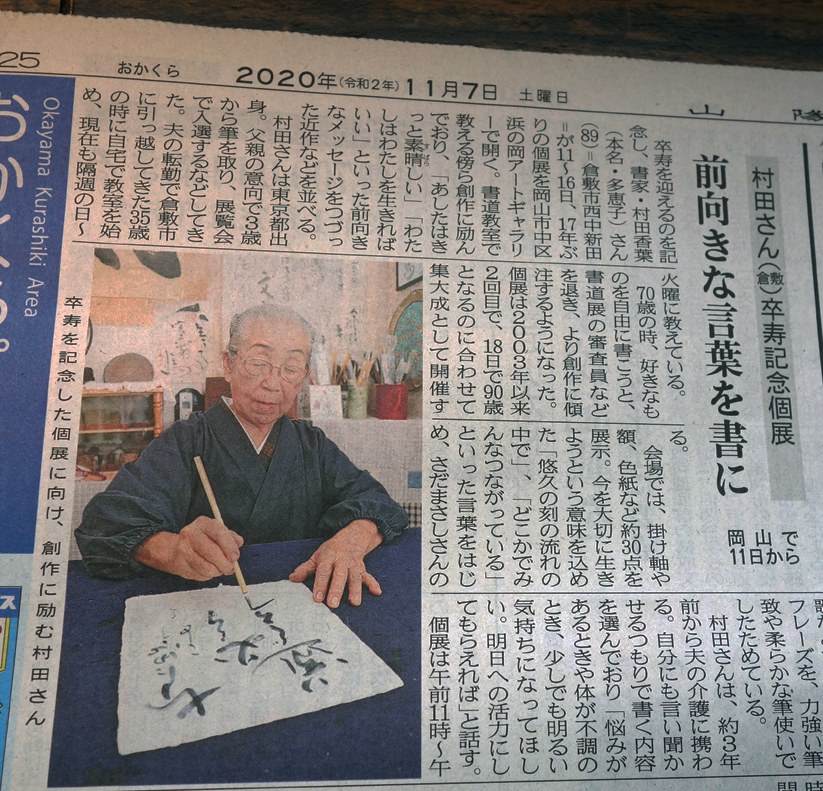 25
おかくら
2020年(令和2年)11月7日 土曜日
山 陽
Okayama Kurashiki Area
おかくら。
村田さん(倉敷)卒寿記念個展
前向きな言葉を書に
岡山で
11日から
卒寿を迎えるのを記
念し、書家・村田香葉
(本名・多恵子)さん
(89)=倉敷市西中新田
=が11~16日、17年ぶ
りの個展を岡山市中区
浜の岡アートギャラリ
ーで開く。書道教室で
教える傍ら創作に励ん
でおり、「あしたはき
っと素晴しい」「わた
しはわたしを生きれば
いい」といった前向き
なメッセージをつづっ
た近作などを並べる。
村田さんは東京都出
身。父親の意向で3歳
から筆を取り、展覧会
で入選するなどしてき
た。夫の転勤で倉敷市
に引っ越してきた35歳
の時に自宅で教室を始
め、現在も隔週の日~
火曜に教えている。
70歳の時、好きなも
のを自由に書こうと、
書道展の審査員など
を退き、より創作に傾
注するようになった。
個展は2003年以来
2回目で、18日で90歳
となるのに合わせて
集大成として開催す
る。
会場では、掛け軸や
額、色紙など約30点を
展示。今を大切に生き
ようという意味を込め
た「悠久の刻の流れの
中で」、「どこかでみ
んなつながっている」
といった言葉をはじ
め、さだまさしさんの
フレーズを、力強い筆
致や柔らかな筆使いで
したためている。
村田さんは、約3年
前から夫の介護に携わ
る。自分にも言い聞か
せるつもりで書く内容
を選んでおり「悩みが
あるときや体が不調の
とき、少しでも明るい
気持ちになってほし
い。明日への活力にし
てもらえれば」と話す。
個展は午前11時~午
卒寿を記念した個展に向け、創作に励む村田さん